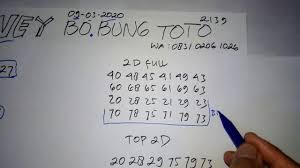 09-03-2020
2139
NEY BO.BUNG TOTO
WA:0831 0206 1026
27
2D FULL
40 48 45 41 49 43
60 68 65 61 69 63
20 28 25 21 29 23
70 78 75 71 79 73
TOP 2D
20 28 29 75 79 73